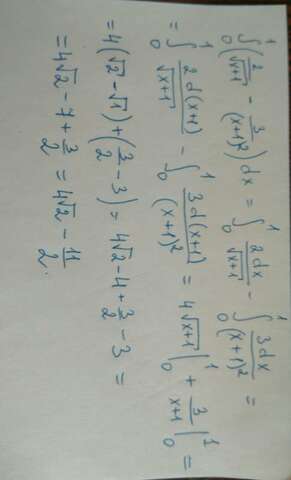 ∫₀¹ (2/√(x+1) - 3/(x+1)²) dx = ∫₀¹ 2dx/√(x+1) - ∫₀¹ 3dx/(x+1)² =
= ∫₀¹ 2d(x+1)/√(x+1) - ∫₀¹ 3d(x+1)/(x+1)² = 4√(x+1) |₀¹ + 3/(x+1) |₀¹ =
= 4(√2 - √1) + (3/2 - 3) = 4√2 - 4 + 3/2 - 3 =
= 4√2 - 7 + 3/2 = 4√2 - 11/2.